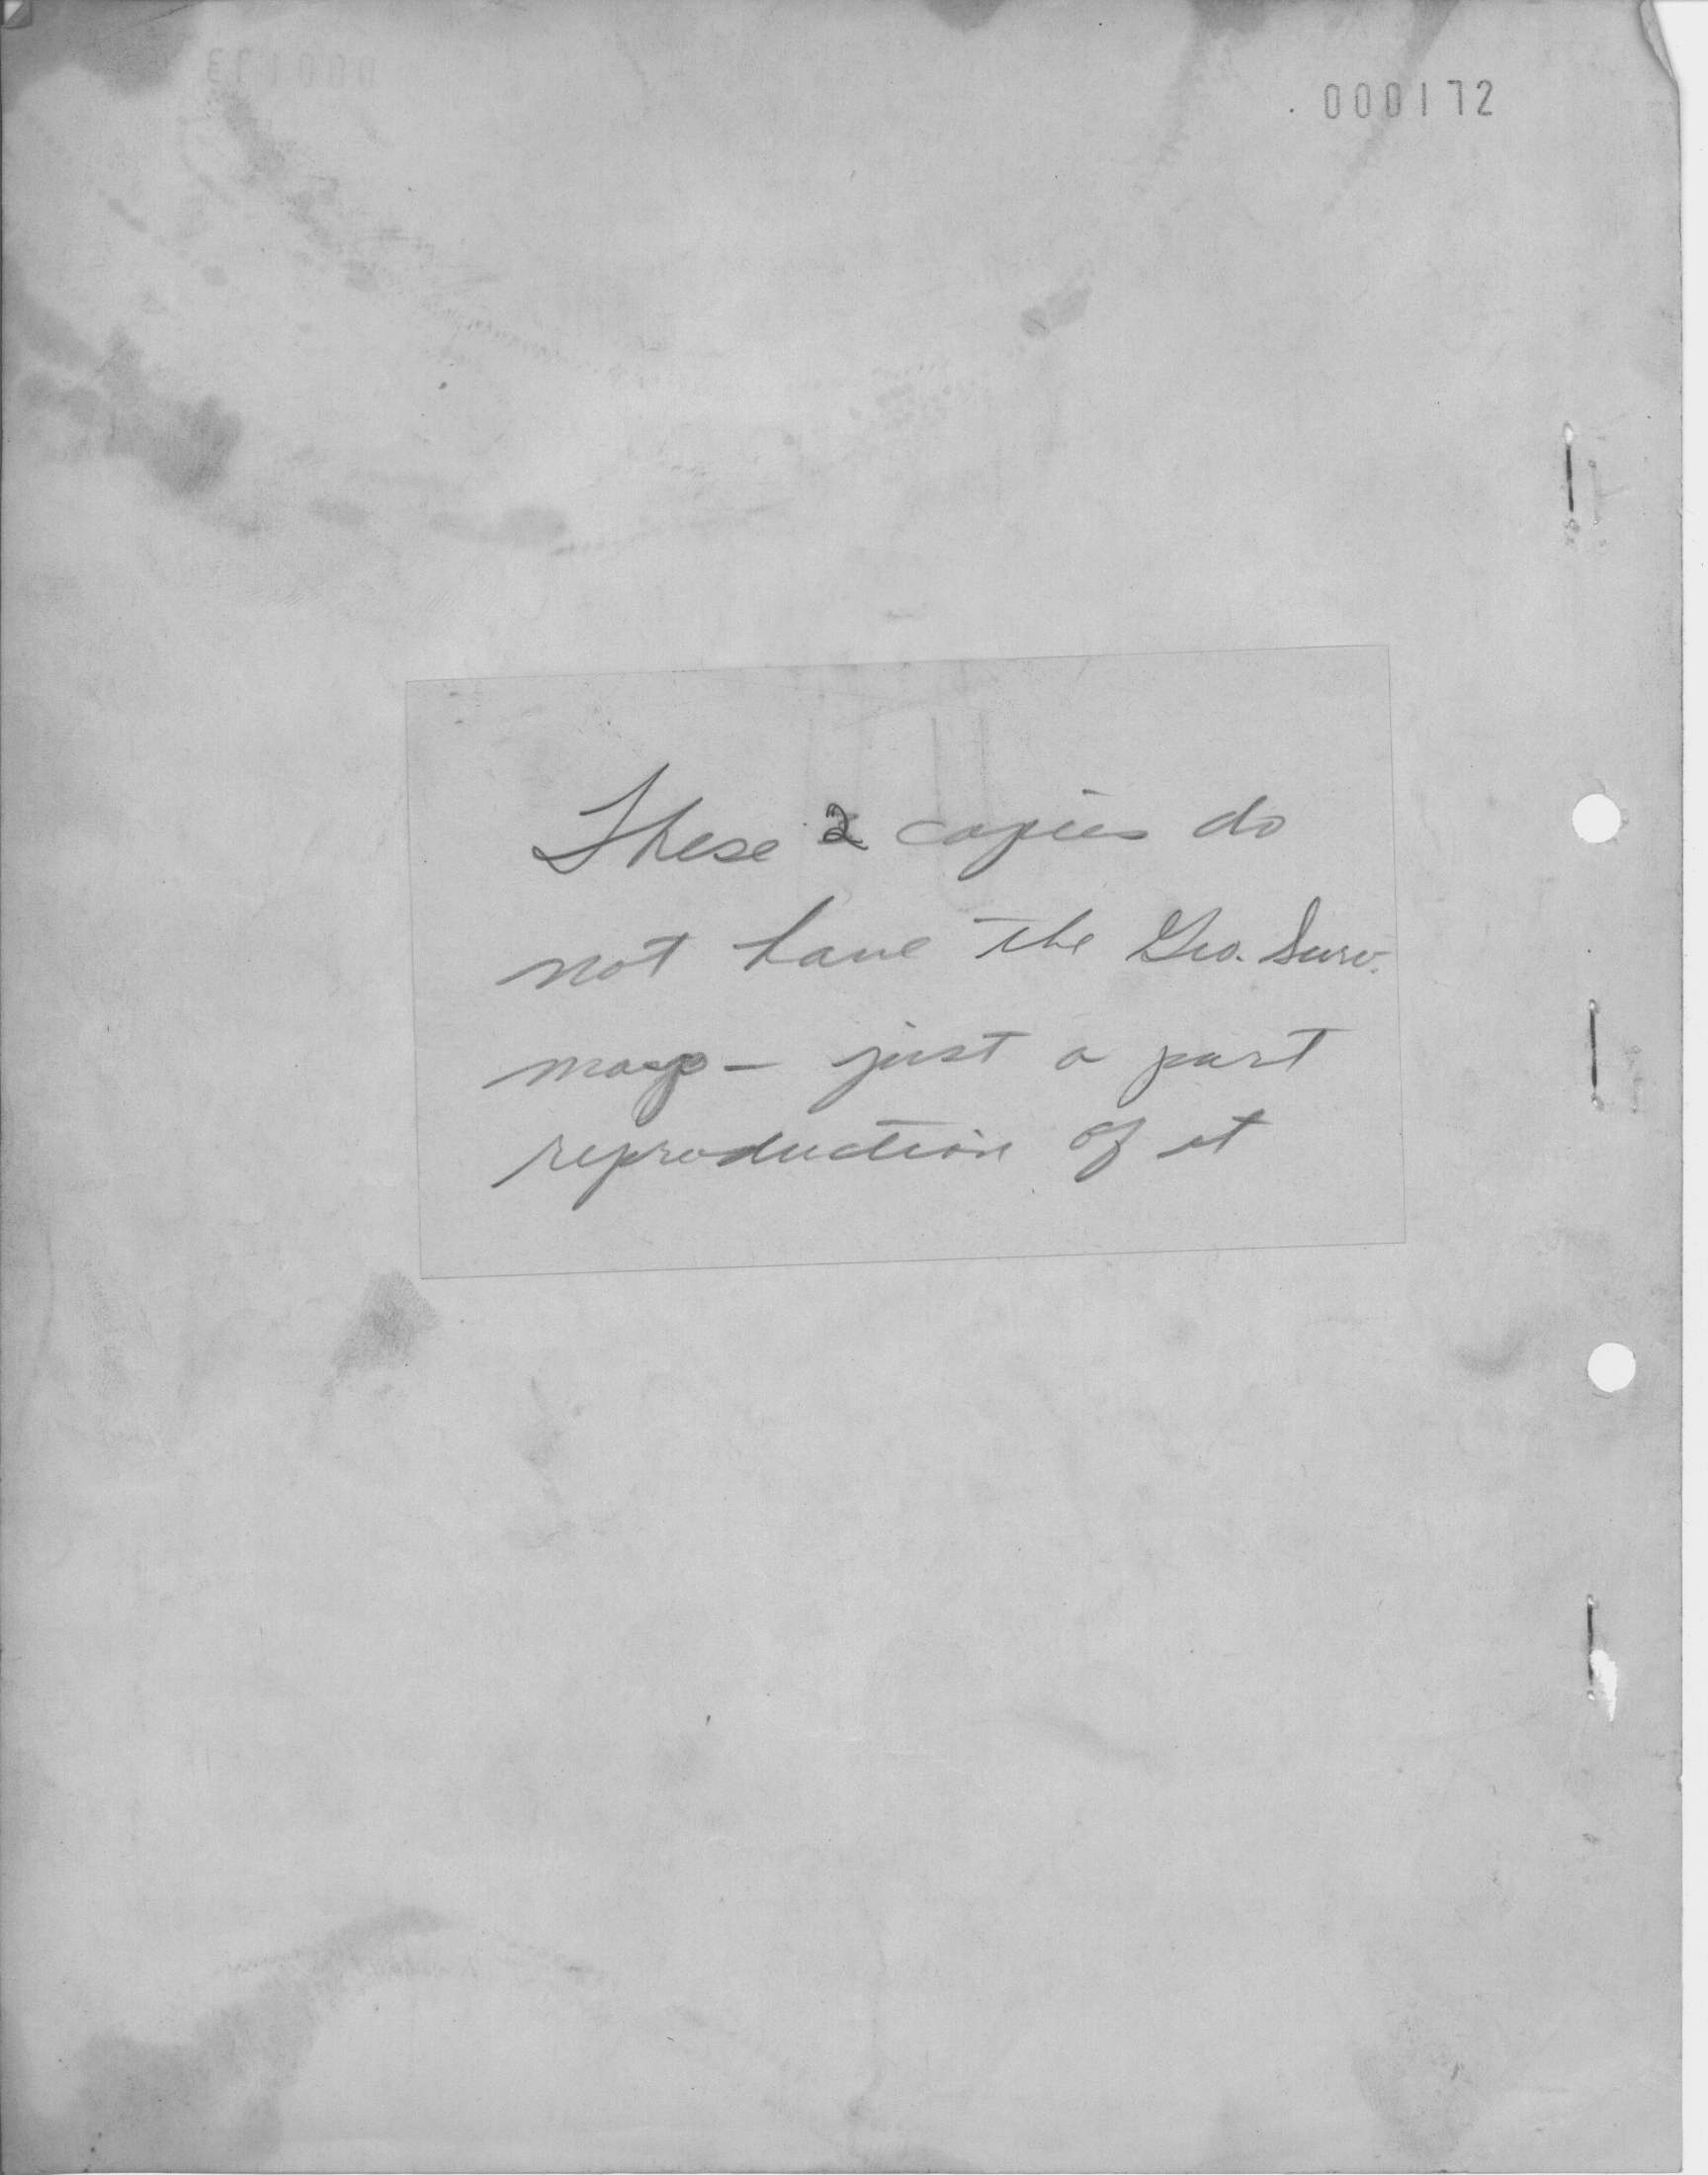 000172
These 2 copies do
not have the Geo. Surv.
map - just a part
reproduction of it